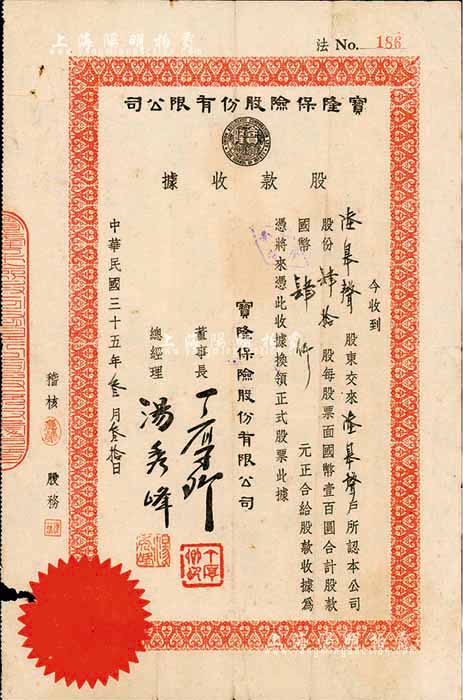 上海陽明拍賣
法 No. 186
寶隆保險股份有限公司
股款收據
今收到
陸皋聲 股東交來 陸皋聲 戶所認本公司
股份 肆拾 股每股票面國幣壹百圓合計股款
國幣 肆仟 元正合給股款收據為
憑將來憑此收據換領正式股票此據
寶隆保險股份有限公司
董事長
總經理 湯秀峰
中華民國三十五年叁月叁拾日
稽核
股務
上海陽明拍賣